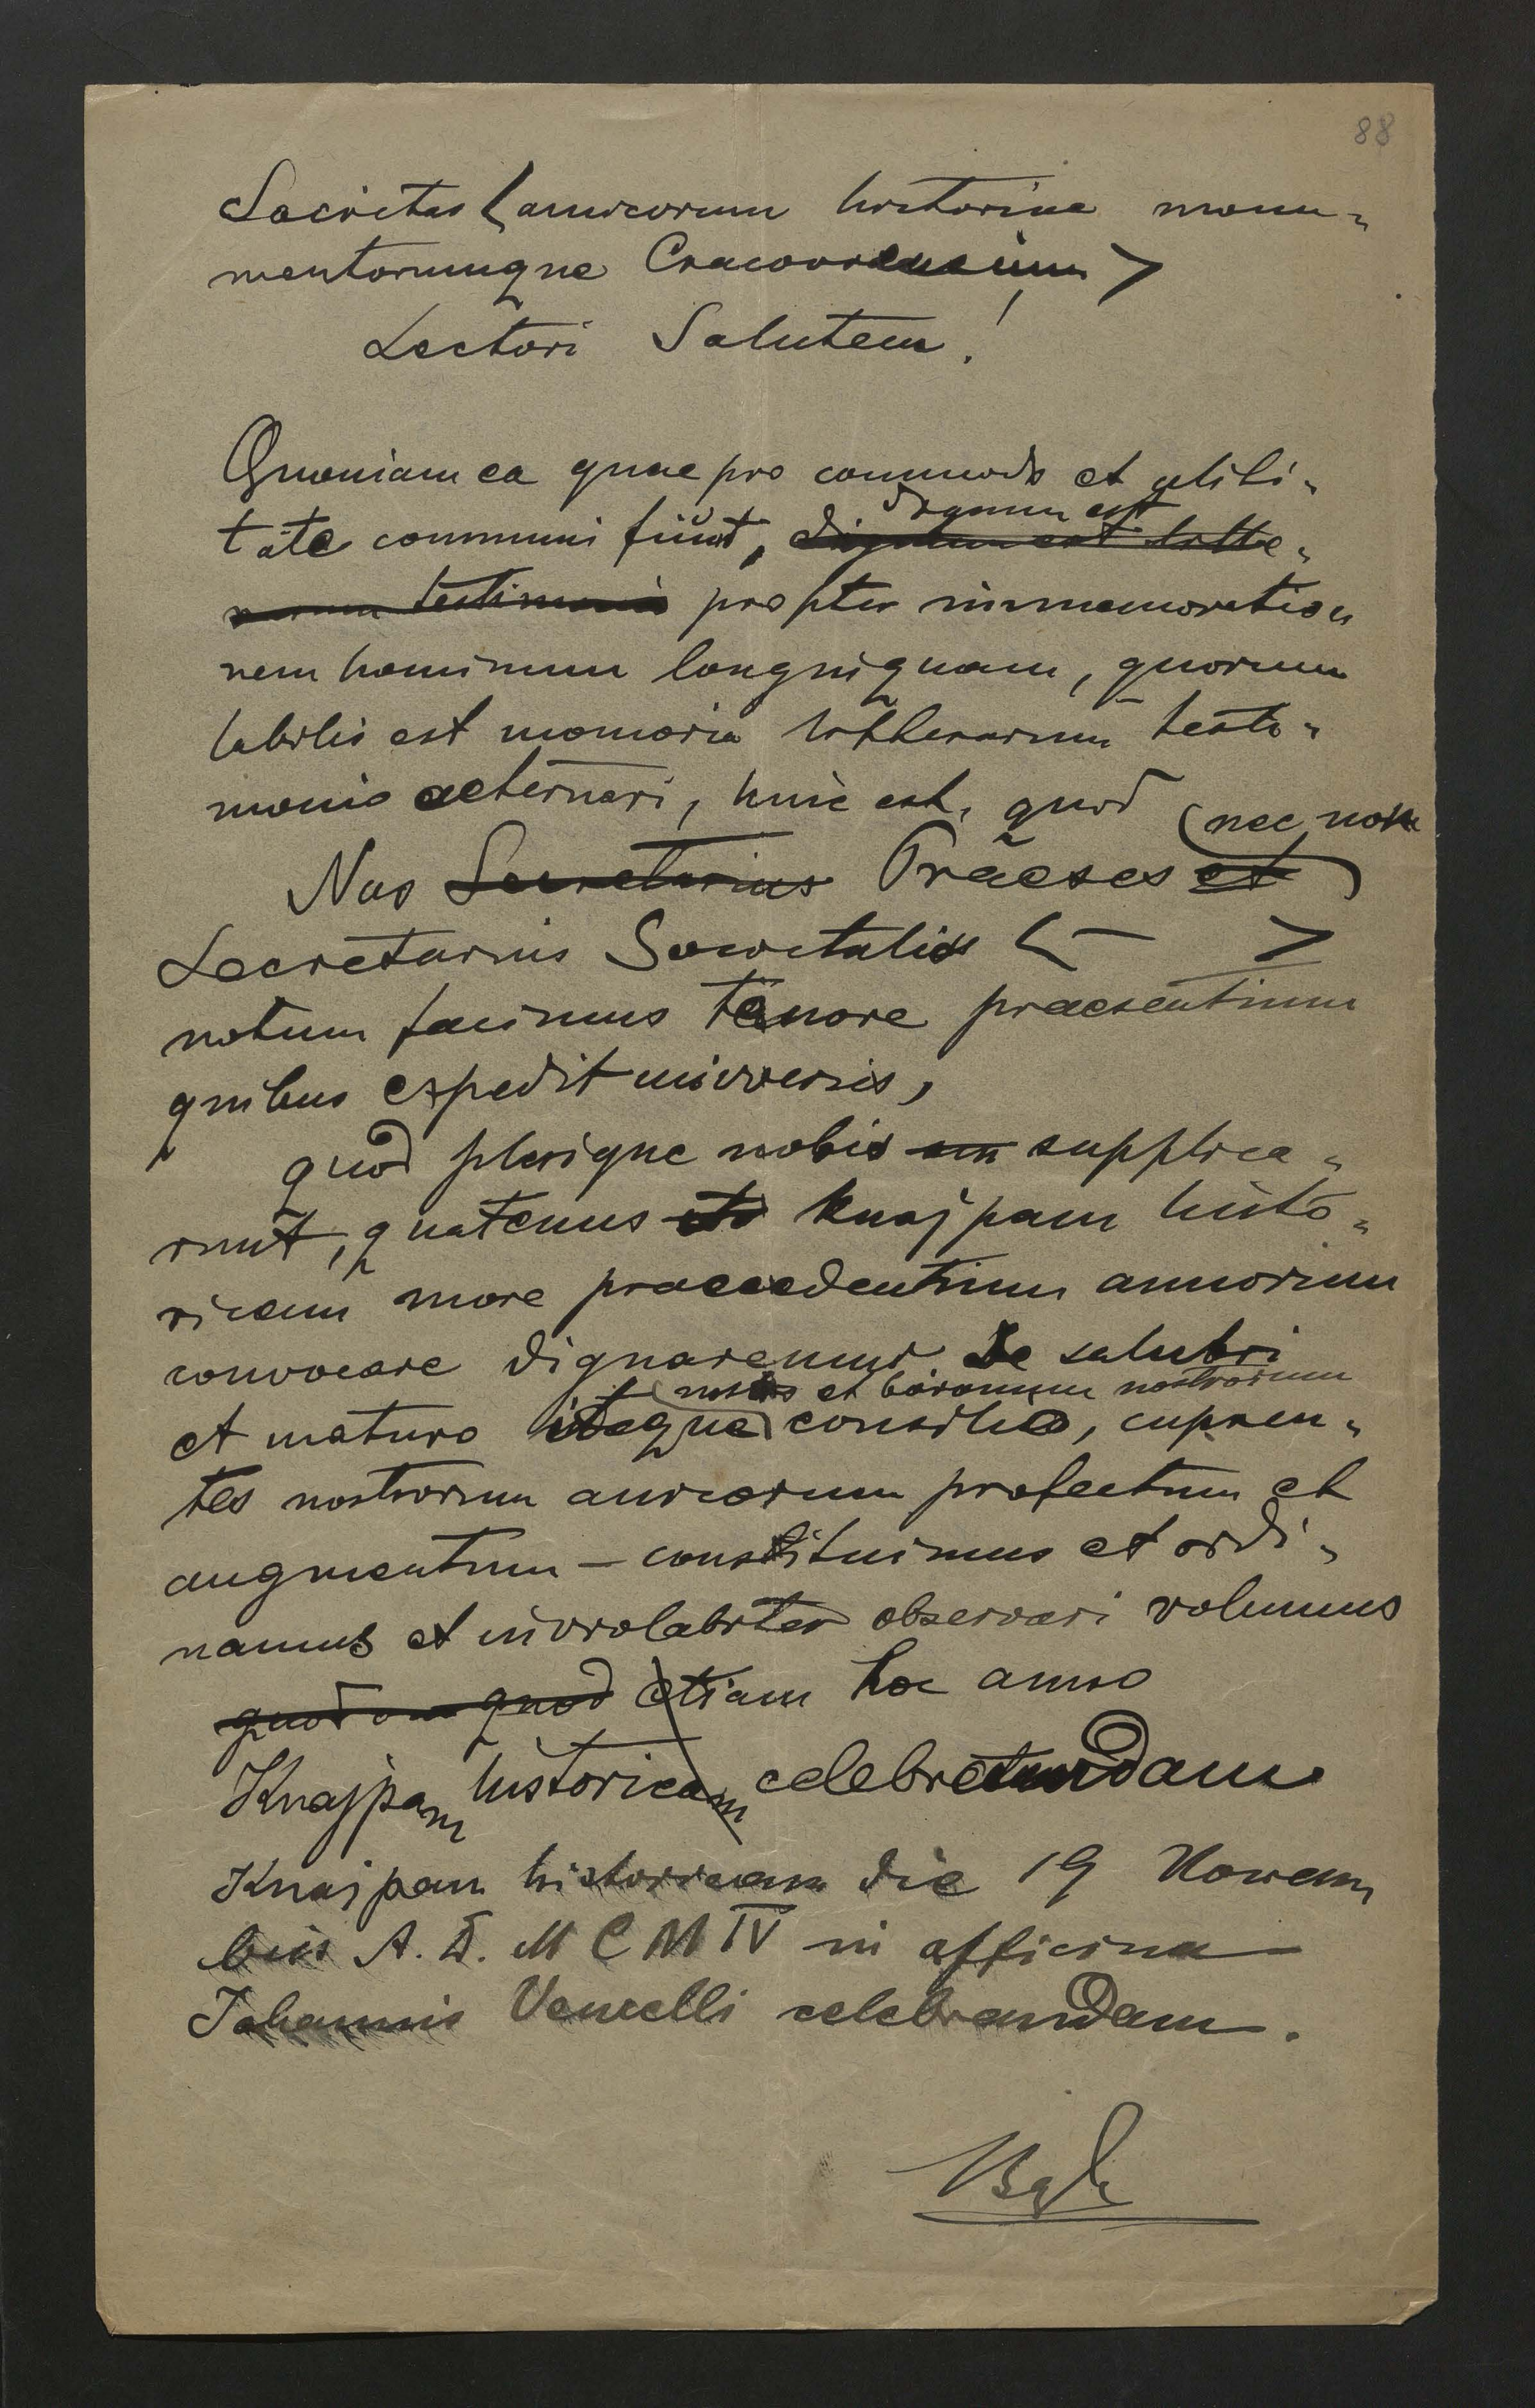 88
Societas < amicorum historiae monu=
mentorumque Cracoviensium >
Lectori Salutem!
Quoniam ea quae pro commodo et utili=
dignum est
tate communi fiunt, dignum est litte=
rarum testimonio propter immemoratio=
nem hominum longniquam, quorum
labilis est memoria litterarum testi=
monio aeternari, hinc est, quod
(nec non
Nos Secretarius Praeses et
Secretarius Societatis < — >
notum facimus tenore praesentium
quibus expedit universis,
quod plerique nobis supplica=
runt, quatenus Knajpam histo=
ricam more praecedentium annorum
convocare dignaremur. De salubri
et baronum nostrorum
et maturo consilio, cupien=
tes nostrorum amicorum profectum et
augmentum — constituimus et ordi=
namus et inviolabiter observari volumus
quod quod etiam hoc anno
Knajpam historicam celebrandam
Knajpam historicam die 19 Novem
bris A. D. MCMIV in officina
Johannis Vencelli celebrandam.